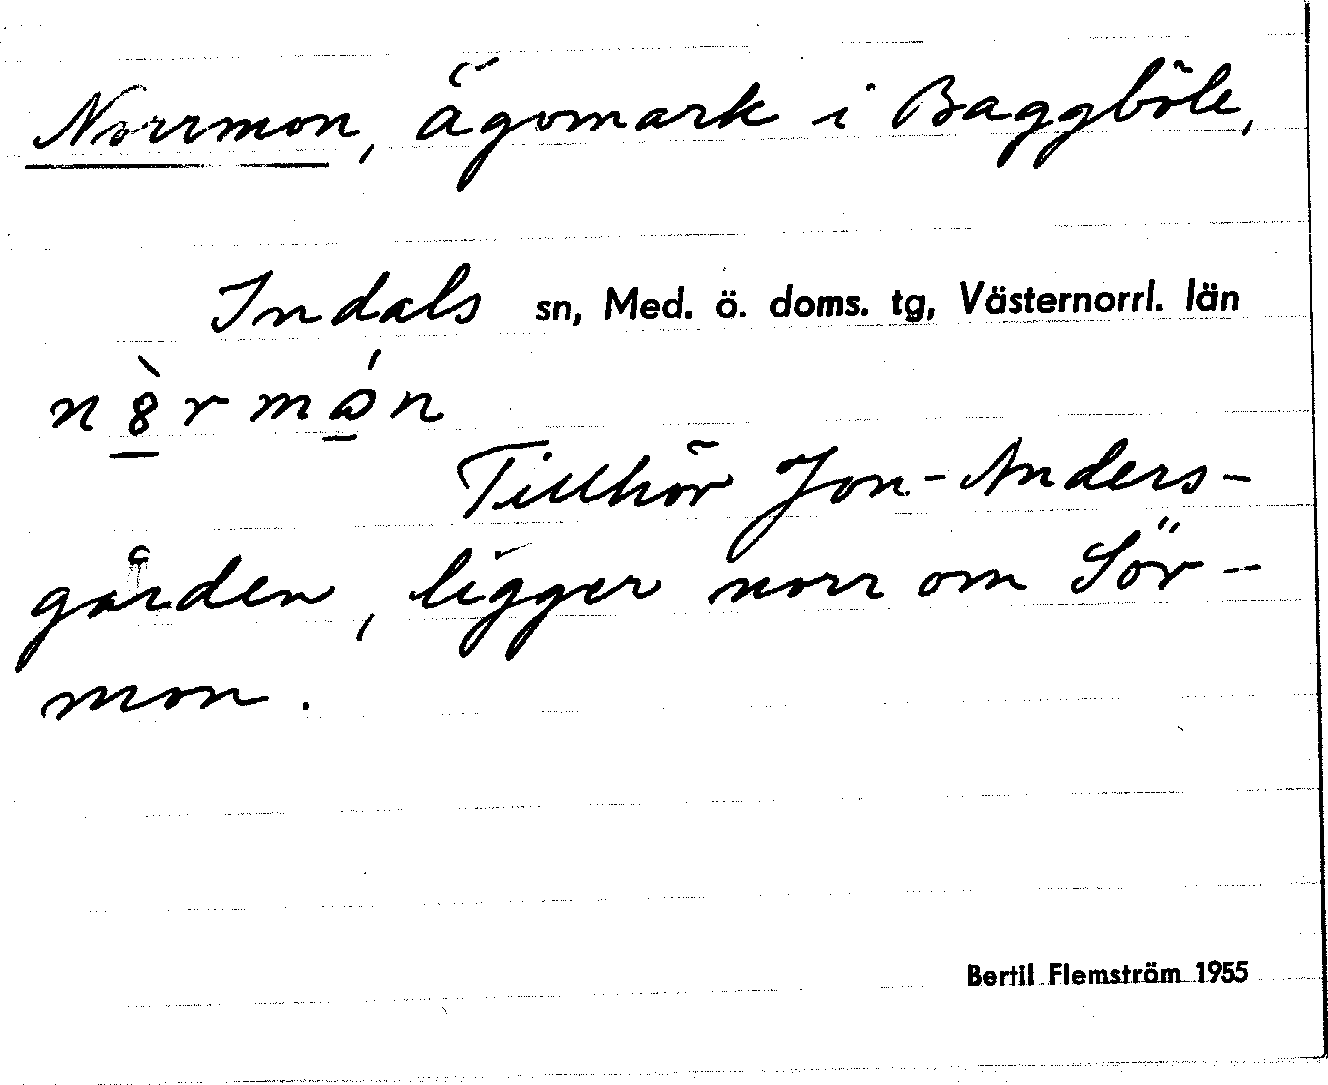 Norrmon, ägomark i Baggböle,
Indals sn, Med. ö. doms. tg, Västernorrl. län
Tillhör Jon-Anders-
gården, ligger norr om Sör-
mon.
Bertil Flemström 1955